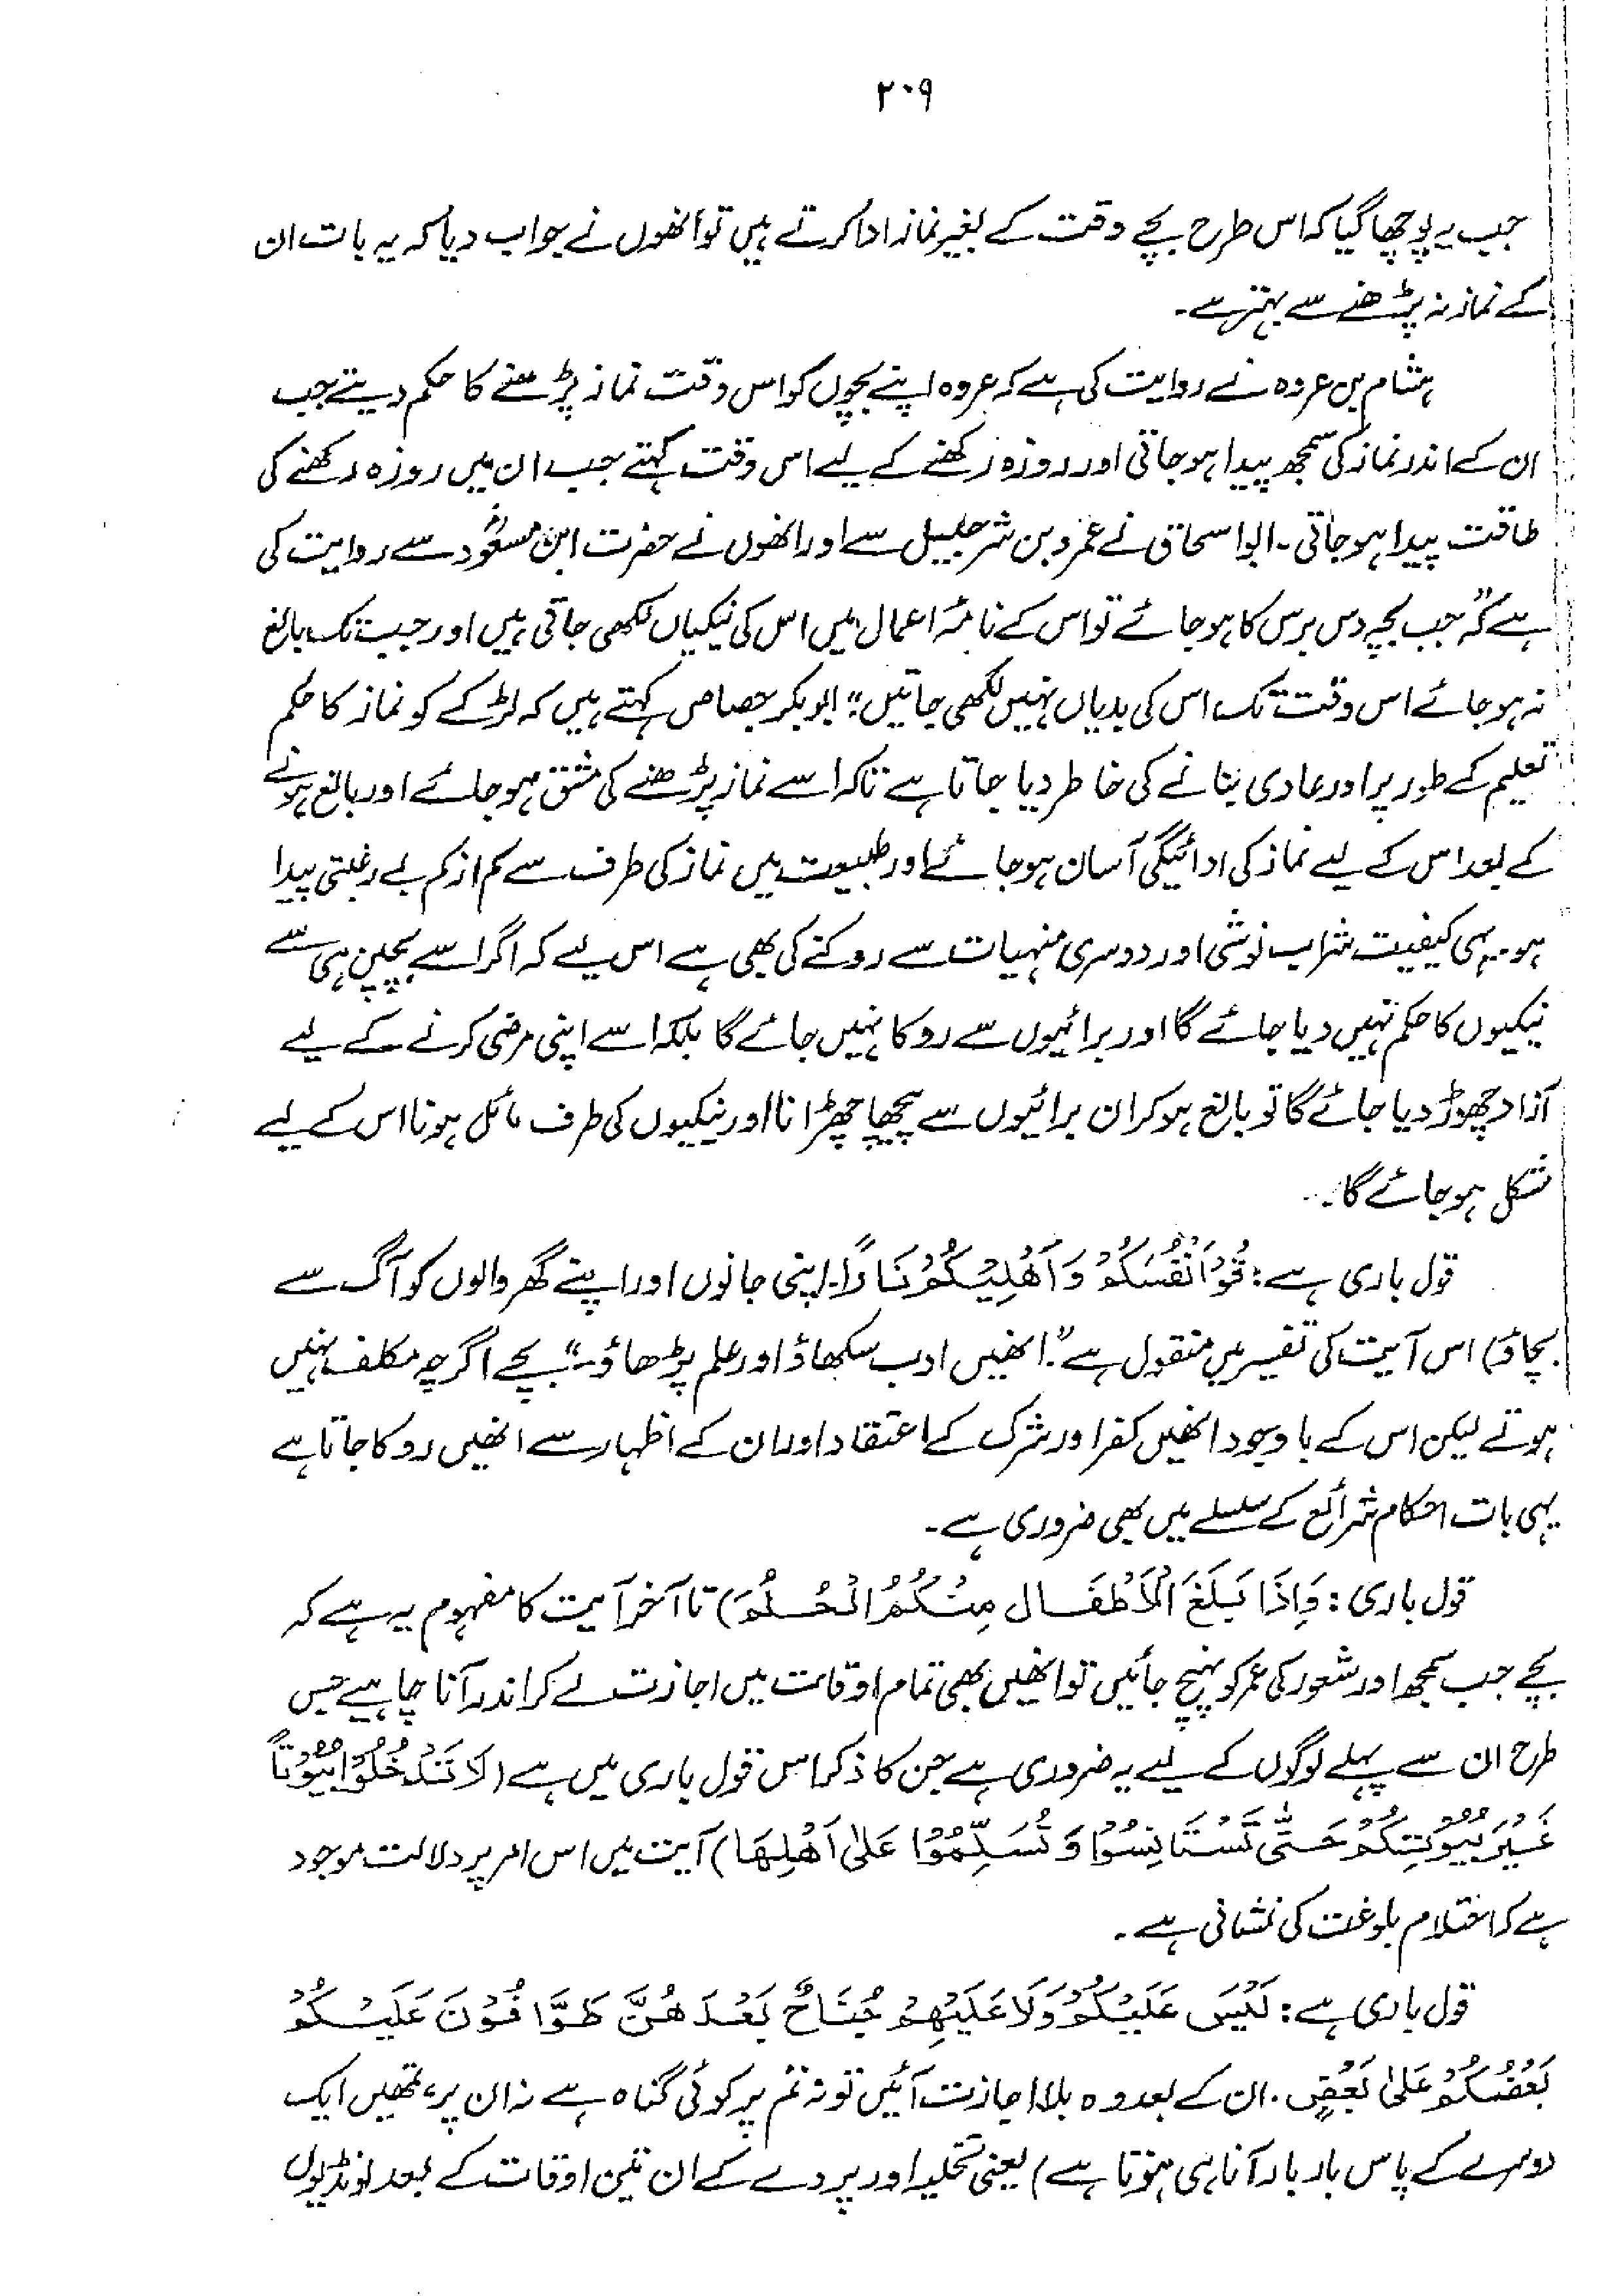 ۲۰۹
جب یہ پوچھا گیا کہ اس طرح بچے وقت کے بغیر نماز ادا کرتے ہیں تو انھوں نے جواب دیا کہ یہ بات ان
کے نماز نہ پڑھنے سے بہتر ہے۔
ہشام بن عروہ نے روایت کی ہے کہ عروہ اپنے بچوں کو اس وقت نماز پڑھنے کا حکم دیتے جب
ان کے اندر نماز کی سمجھ پیدا ہو جاتی اور روزہ رکھنے کے لیے اس وقت کہتے جب ان میں روزہ رکھنے کی
طاقت پیدا ہو جاتی۔ ابو اسحاق نے عمرو بن شرجیل سے اور انھوں نے حضرت ابن مسعودؓ سے روایت کی
ہے کہ "جب بچہ دس برس کا ہو جائے تو اس کے نامۂ اعمال میں اس کی نیکیاں لکھی جاتی ہیں اور جب تک بالغ
نہ ہو جائے اس وقت تک اس کی بدیاں نہیں لکھی جاتیں" ابوبکر جصاص کہتے ہیں کہ لڑکے کو نماز کا حکم
تعلیم کے طور پر اور عادی بنانے کی خاطر دیا جاتا ہے تاکہ اسے نماز پڑھنے کی مشق ہو جائے اور بالغ ہونے
کے بعد اس کے لیے نماز کی ادائیگی آسان ہو جائے اور طبیعت میں نماز کی طرف سے کم از کم بے رغبتی پیدا
ہو۔ یہی کیفیت شراب نوشی اور دوسری منہیات سے روکنے کی بھی ہے اس لیے کہ اگر اسے بچپن ہی سے
نیکیوں کا حکم نہیں دیا جائے گا اور برائیوں سے روکا نہیں جائے گا بلکہ اسے اپنی مرضی کرنے کے لیے
آزاد چھوڑ دیا جائے گا تو بالغ ہو کر ان برائیوں سے پیچھا چھڑانا اور نیکیوں کی طرف مائل ہونا اس کے لیے
مشکل ہو جائے گا۔
قول باری ہے: قُوْا اَنْفُسَكُمْ وَاَهْلِيْكُمْ نَارًا۔ اپنی جانوں اور اپنے گھر والوں کو آگ سے
بچاؤ) اس آیت کی تفسیر میں منقول ہے "انھیں ادب سکھاؤ اور علم پڑھاؤ۔" بچے اگرچہ مکلف نہیں
ہوتے لیکن اس کے باوجود انھیں کفر اور شرک کے اعتقاد اور ان کے اظہار سے انھیں روکا جاتا ہے
یہی بات احکام شرائع کے سلسلے میں بھی ضروری ہے۔
قول باری: وَاِذَا بَلَغَ الْاَطْفَالُ مِنْكُمُ الْحُلُمَ) تا آخر آیت کا مفہوم یہ ہے کہ
بچے جب سمجھ اور شعور کی عمر کو پہنچ جائیں تو انھیں بھی تمام اوقات میں اجازت لے کر اندر آنا چاہیے جس
طرح ان سے پہلے لوگوں کے لیے یہ ضروری ہے جن کا ذکر اس قول باری میں ہے (لَا تَدْخُلُوْا بُيُوْتًا
غَيْرَ بُيُوْتِكُمْ حَتّٰى تَسْتَانِسُوْا وَتُسَلِّمُوْا عَلٰى اَهْلِهَا) آیت میں اس امر پر دلالت موجود
ہے کہ احتلام بلوغت کی نشانی ہے۔
قول باری ہے: لَيْسَ عَلَيْكُمْ وَلَا عَلَيْهِمْ جُنَاحٌ بَعْدَهُنَّ طَوَّافُوْنَ عَلَيْكُمْ
بَعْضُكُمْ عَلٰى بَعْضٍ۔ ان کے بعد وہ بلا اجازت آئیں تو نہ تم پر کوئی گناہ ہے نہ ان پر، تمھیں ایک
دوسرے کے پاس بار بار آنا ہی ہوتا ہے) یعنی تخلیہ اور پردے کے ان تین اوقات کے بعد لونڈیوں